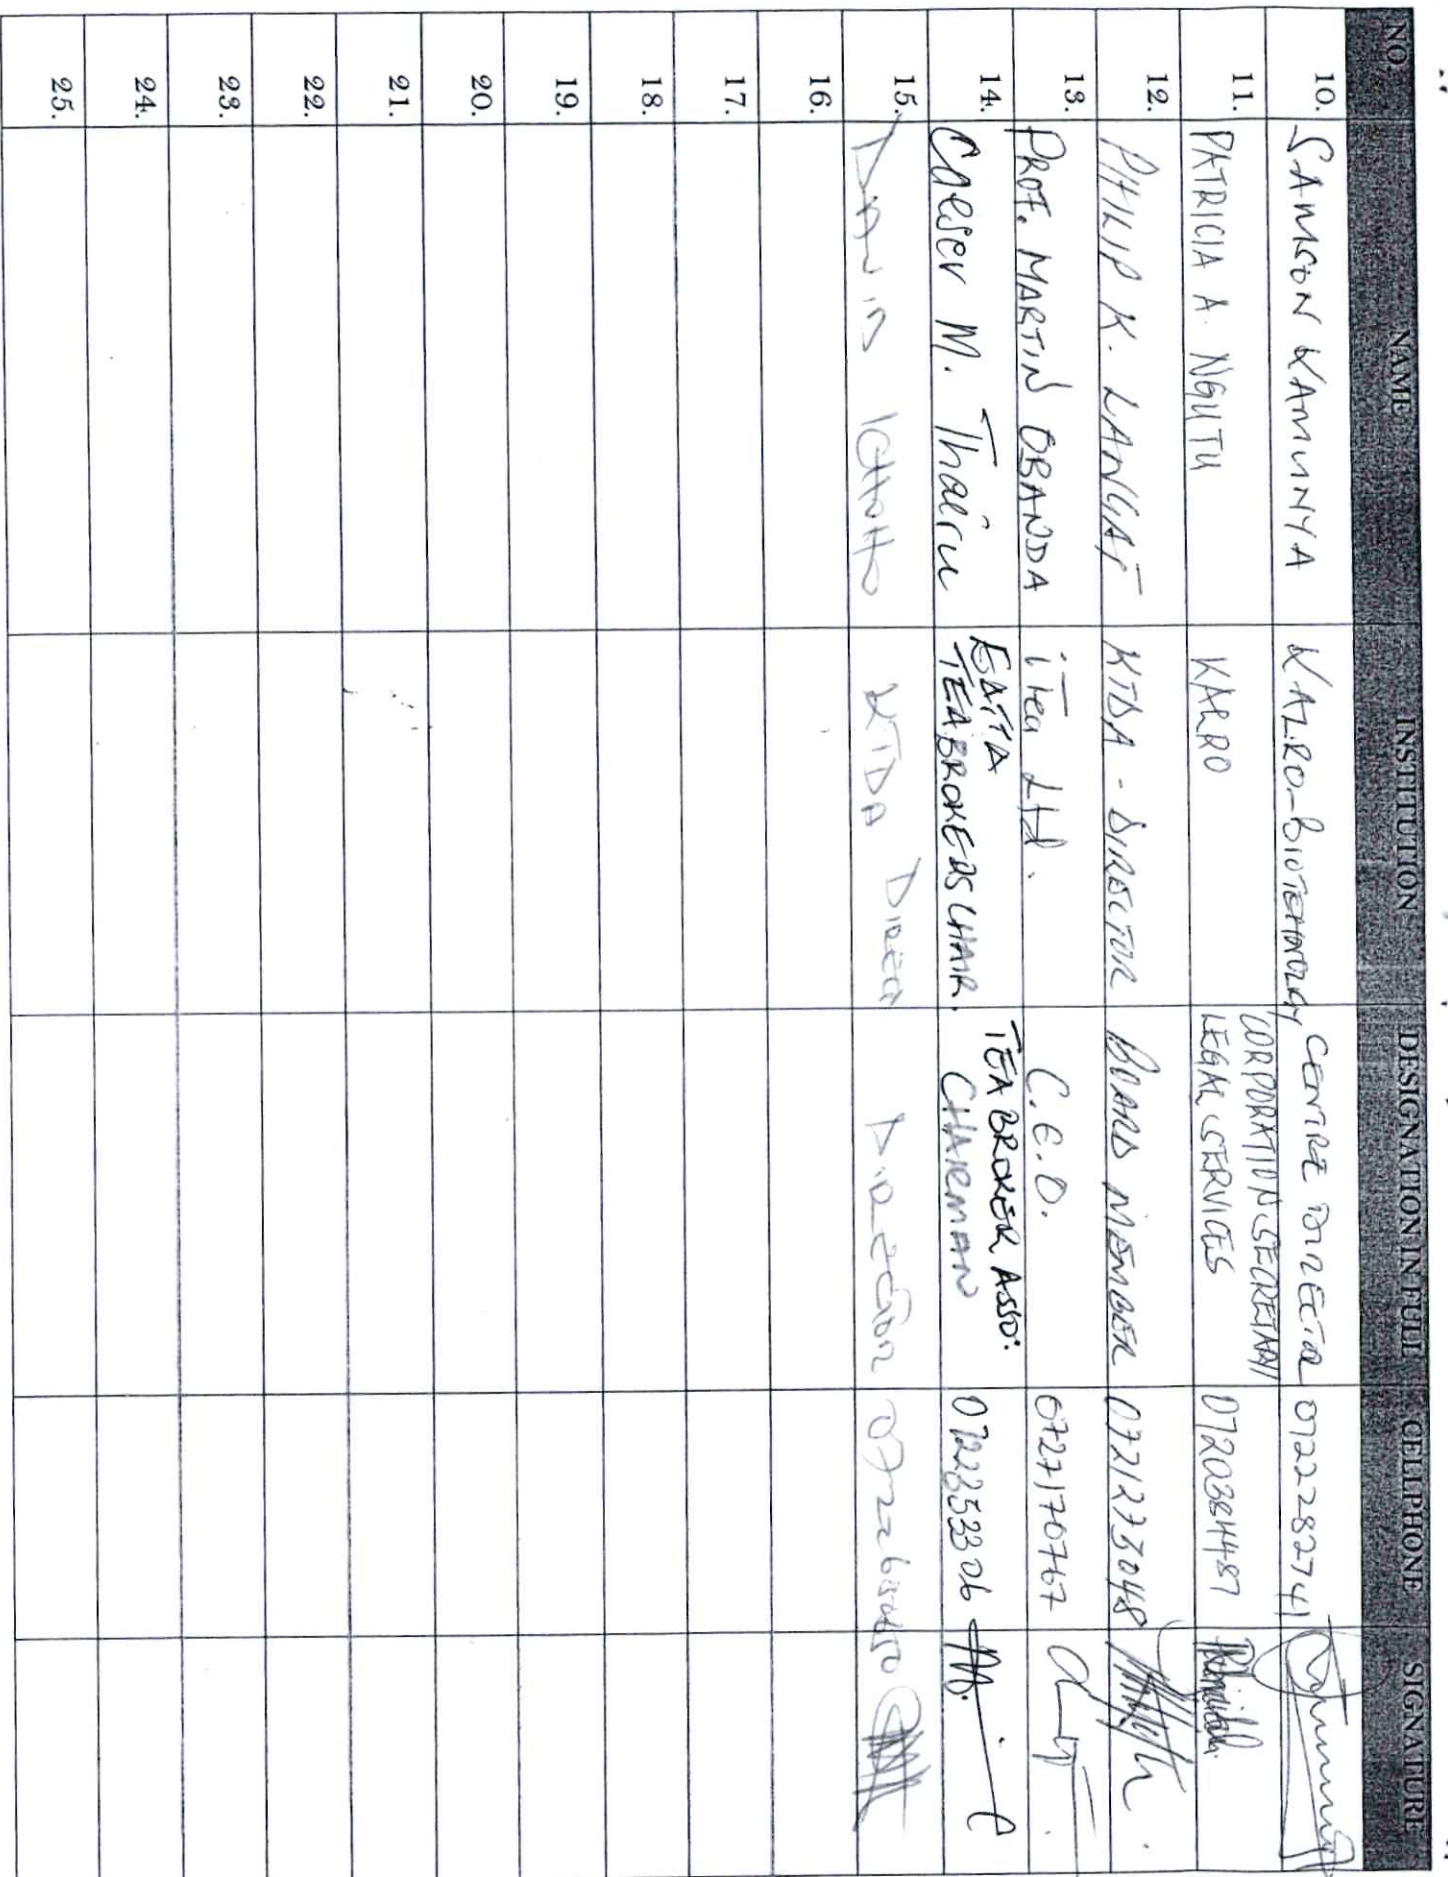 NO. NAME INSTITUTION DESIGNATION IN FULL CELLPHONE SIGNATURE
10. SAMSON KAMUNYA KALRO-BIOTECHNOLOGY CENTRE DIRECTOR 0722282741
11. PATRICIA A. NGUTU KALRO CORPORATION SECRETARY/
LEGAL SERVICES 0720384487
12. PHILIP K. LANGAT KTDA - DIRECTOR BOARD MEMBER 0721273048
13. PROF. MARTIN OBANDA iTea Ltd. C.E.O. 0727170767
14. Caeser M. Thairu EATTA
TEA BROKERS CHAIR. TEA BROKER ASSO:
CHAIRMAN
15. KTDA Direct DIRECTOR
16.
17.
18.
19.
20.
21.
22.
23.
24.
25.